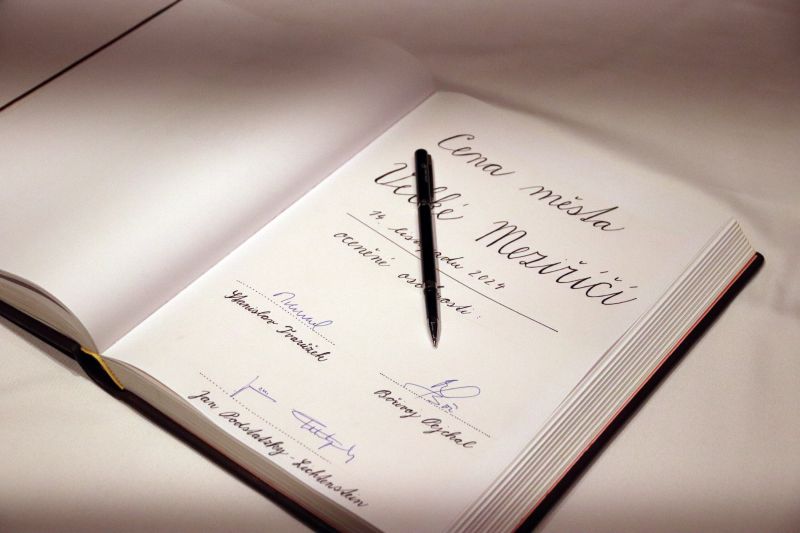 Cena města
Velké Meziříčí
14. listopadu 2024
ocenění osobnosti:
Stanislav Tvarůžek
Bořivoj Pejchal
Jan Podstatzky-Lichtenstein